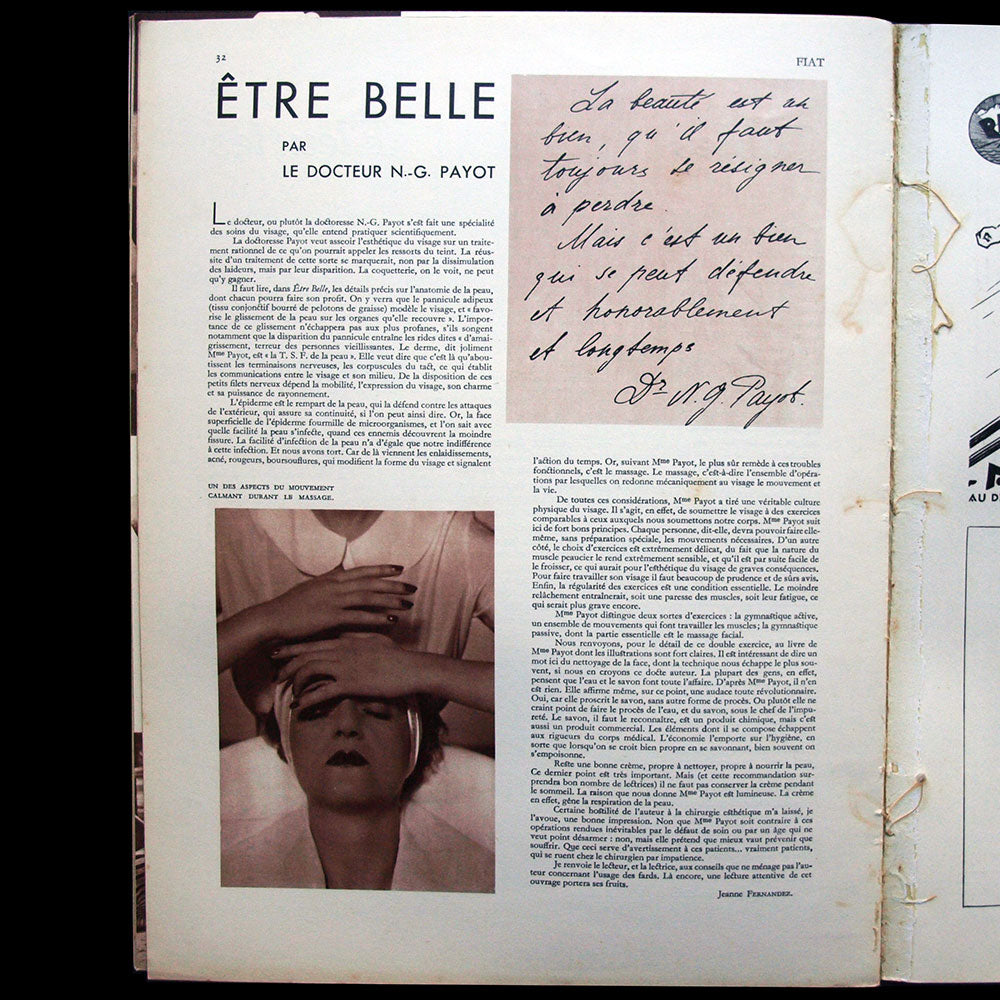 32
FIAT
ÊTRE BELLE
PAR
LE DOCTEUR N.-G. PAYOT
La beauté est un
bien, qu'il faut
toujours se résigner
à perdre.
Mais c'est un bien
qui se peut défendre
et honorablement
et longtemps
Dr N. G. Payot.
Le docteur, ou plutôt la doctoresse N.-G. Payot s'est fait une spécialité
des soins du visage, qu'elle entend pratiquer scientifiquement.
La doctoresse Payot veut asseoir l'esthétique du visage sur un traite-
ment rationnel de ce qu'on pourrait appeler les ressorts du teint. La réus-
site d'un traitement de cette sorte se marquerait, non par la dissimulation
des laideurs, mais par leur disparition. La coquetterie, on le voit, ne peut
qu'y gagner.
Il faut lire, dans Être Belle, les détails précis sur l'anatomie de la peau,
dont chacun pourra faire son profit. On y verra que le pannicule adipeux
(tissu conjonctif bourré de pelotons de graisse) modèle le visage, et « favo-
rise le glissement de la peau sur les organes qu'elle recouvre ». L'impor-
tance de ce glissement n'échappera pas aux plus profanes, s'ils songent
notamment que la disparition du pannicule entraîne les rides dites « d'amai-
grissement, terreur des personnes vieillissantes. Le derme, dit joliment
Mme Payot, est « la T. S. F. de la peau ». Elle veut dire que c'est là qu'abou-
tissent les terminaisons nerveuses, les corpuscules du tact, ce qui établit
les communications entre le visage et son milieu. De la disposition de ces
petits filets nerveux dépend la mobilité, l'expression du visage, son charme
et sa puissance de rayonnement.
L'épiderme est le rempart de la peau, qui la défend contre les attaques
de l'extérieur, qui assure sa continuité, si l'on peut ainsi dire. Or, la face
superficielle de l'épiderme fourmille de microorganismes, et l'on sait avec
quelle facilité la peau s'infecte, quand ces ennemis découvrent la moindre
fissure. La facilité d'infection de la peau n'a d'égale que notre indifférence
à cette infection. Et nous avons tort. Car de là viennent les enlaidissements,
acné, rougeurs, boursouflures, qui modifient la forme du visage et signalent
UN DES ASPECTS DU MOUVEMENT
CALMANT DURANT LE MASSAGE.
l'action du temps. Or, suivant Mme Payot, le plus sûr remède à ces troubles
fonctionnels, c'est le massage. Le massage, c'est-à-dire l'ensemble d'opéra-
tions par lesquelles on redonne mécaniquement au visage le mouvement et
la vie.
De toutes ces considérations, Mme Payot a tiré une véritable culture
physique du visage. Il s'agit, en effet, de soumettre le visage à des exercices
comparables à ceux auxquels nous soumettons notre corps. Mme Payot suit
ici de fort bons principes. Chaque personne, dit-elle, devra pouvoir faire elle-
même, sans préparation spéciale, les mouvements nécessaires. D'un autre
côté, le choix d'exercices est extrêmement délicat, du fait que la nature du
muscle peaucier le rend extrêmement sensible, et qu'il est par suite facile de
le froisser, ce qui aurait pour l'esthétique du visage de graves conséquences.
Pour faire travailler son visage il faut beaucoup de prudence et de sûrs avis.
Enfin, la régularité des exercices est une condition essentielle. Le moindre
relâchement entraînerait, soit une paresse des muscles, soit leur fatigue, ce
qui serait plus grave encore.
Mme Payot distingue deux sortes d'exercices : la gymnastique active,
un ensemble de mouvements qui font travailler les muscles; la gymnastique
passive, dont la partie essentielle est le massage facial.
Nous renvoyons, pour le détail de ce double exercice, au livre de
Mme Payot dont les illustrations sont fort claires. Il est intéressant de dire un
mot ici du nettoyage de la face, dont la technique nous échappe le plus sou-
vent, si nous en croyons ce docte auteur. La plupart des gens, en effet,
pensent que l'eau et le savon font toute l'affaire. D'après Mme Payot, il n'en
est rien. Elle affirme même, sur ce point, une audace toute révolutionnaire.
Oui, car elle proscrit le savon, sans autre forme de procès. Ou plutôt elle ne
craint point de faire le procès de l'eau, et du savon, sous le chef de l'impu-
reté. Le savon, il faut le reconnaître, est un produit chimique, mais c'est
aussi un produit commercial. Les éléments dont il se compose échappent
aux rigueurs du corps médical. L'économie l'emporte sur l'hygiène, en
sorte que lorsqu'on se croit bien propre en se savonnant, bien souvent on
s'empoisonne.
Reste une bonne crème, propre à nettoyer, propre à nourrir la peau,
Ce dernier point est très important. Mais (et cette recommandation sur-
prendra bon nombre de lectrices) il ne faut pas conserver la crème pendant
le sommeil. La raison que nous donne Mme Payot est lumineuse. La crème
en effet, gêne la respiration de la peau.
Certaine hostilité de l'auteur à la chirurgie esthétique m'a laissé, je
l'avoue, une bonne impression. Non que Mme Payot soit contraire à ces
opérations rendues inévitables par le défaut de soin ou par un âge qui ne
veut point désarmer : non, mais elle prétend que mieux vaut prévenir que
souffrir. Que ceci serve d'avertissement à ces patients... vraiment patients,
qui se ruent chez le chirurgien par impatience.
Je renvoie le lecteur, et la lectrice, aux conseils que ne ménage pas l'au-
teur concernant l'usage des fards. Là encore, une lecture attentive de cet
ouvrage portera ses fruits.
Jeanne FERNANDEZ.
AU D